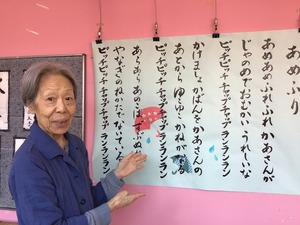 あめふり
あめあめふれふれかあさんが
じゃのめでおむかいうれしいな
ピッチピッチチャップチャップランランラン
かけましょかばんをかあさんの
あとからゆこゆこかねがなる
ピッチピッチチャップチャップランランラン
あらあらあのこはずぶぬれ
やなぎのねかたでないている